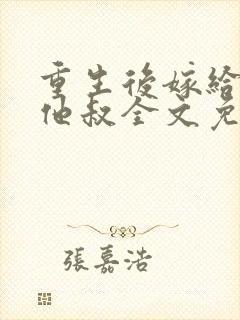 重生後嫁給
他叔全文免
張嘉浩